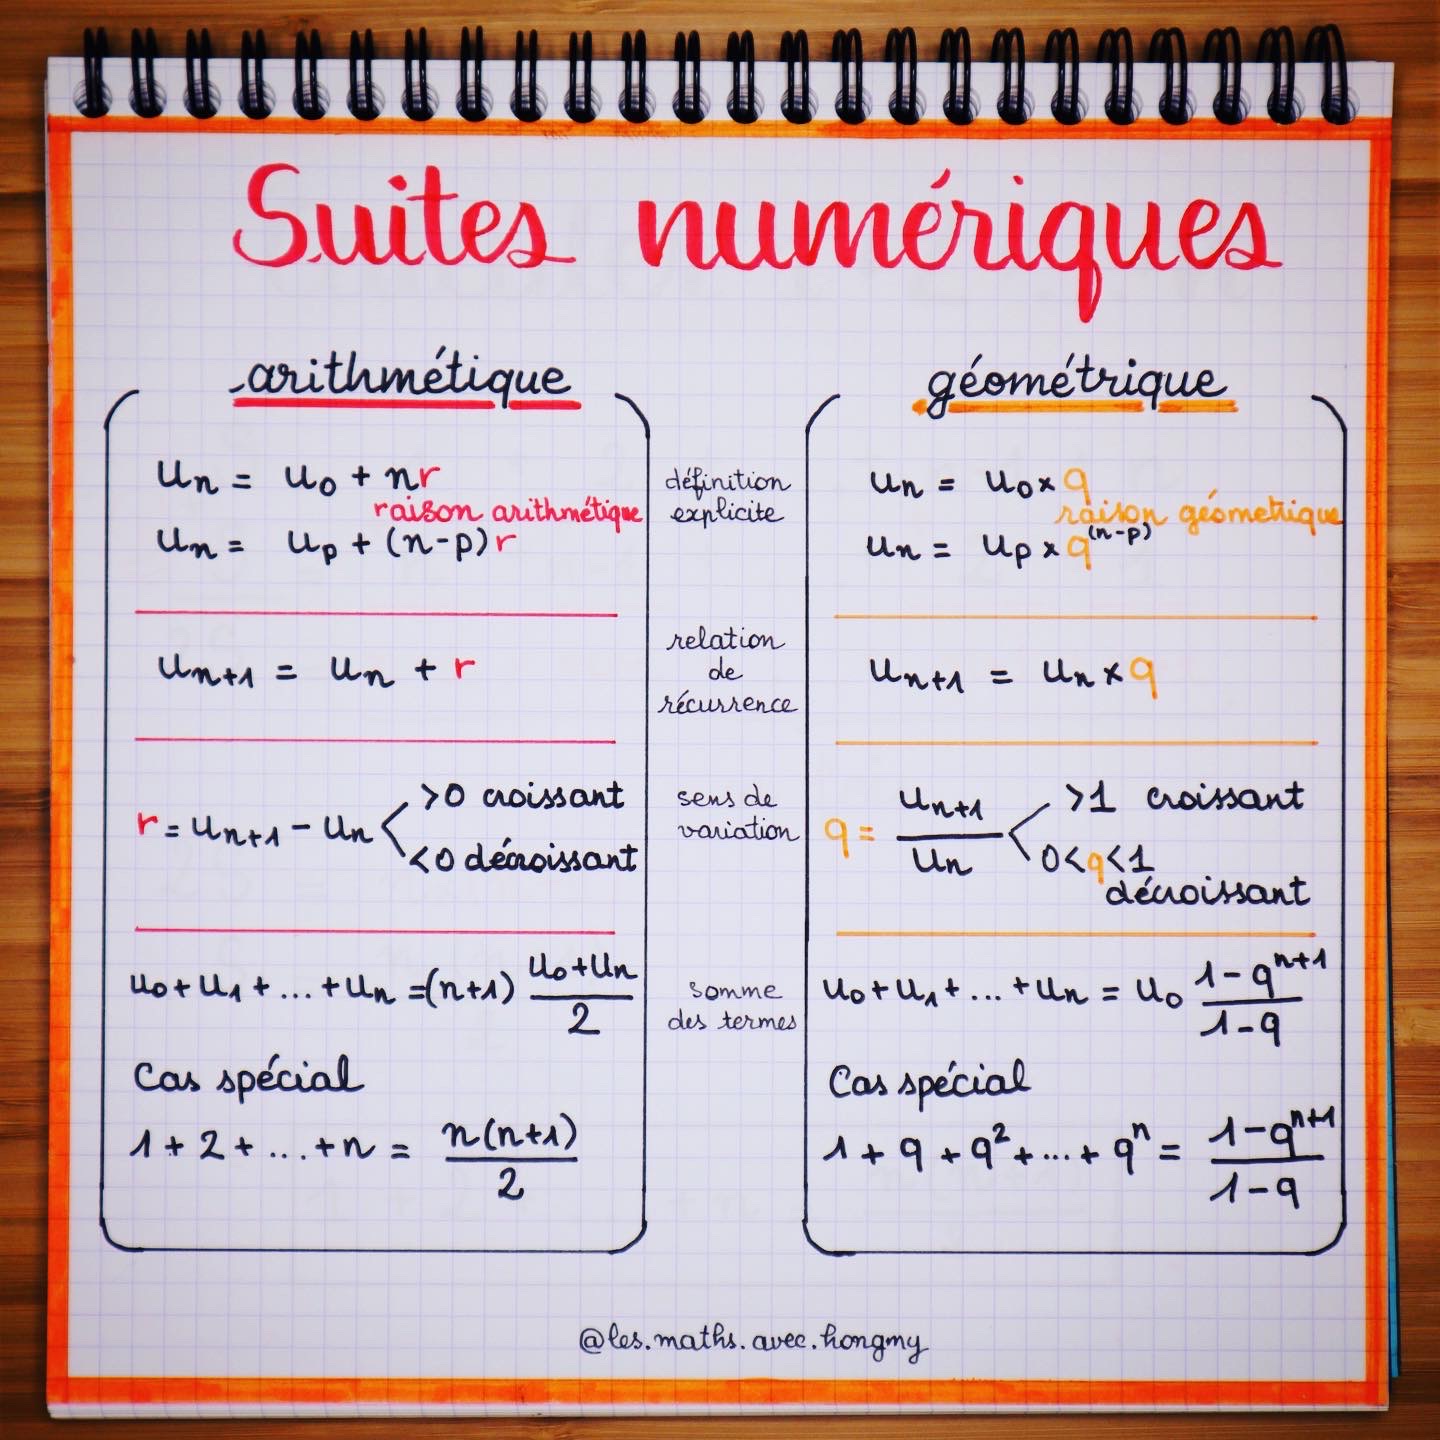 Suites numériques
arithmétique
uₙ = u₀ + nr
raison arithmétique
uₙ = uₚ + (n-p)r
uₙ₊₁ = uₙ + r
r = uₙ₊₁ - uₙ
>0 croissant
<0 décroissant
u₀ + u₁ + ... + uₙ = (n+1) (u₀+uₙ)/2
Cas spécial
1 + 2 + ... + n = n(n+1)/2
définition
explicite
relation
de
récurrence
sens de
variation
somme
des termes
géométrique
uₙ = u₀ × q
raison géometrique
uₙ = uₚ × q⁽ⁿ⁻ᵖ⁾
uₙ₊₁ = uₙ × q
q = uₙ₊₁/uₙ
>1 croissant
0<q<1
décroissant
u₀ + u₁ + ... + uₙ = u₀ (1-qⁿ⁺¹)/(1-q)
Cas spécial
1 + q + q² + ... + qⁿ = (1-qⁿ⁺¹)/(1-q)
@les.maths.avec.hongmy